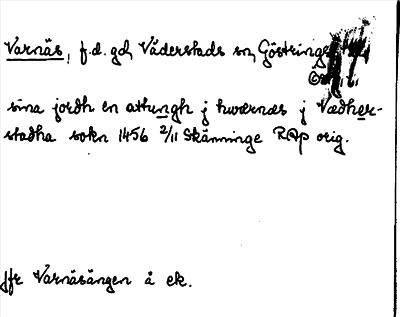 Varnäs, f.d. gd, Väderstads sn, Göstrings
sina jordh en athungh j hwærnæs j Vædher-
stadha sokn 1456 2/11 Skänninge RAp orig.
Jfr Varnäsängen å ek.